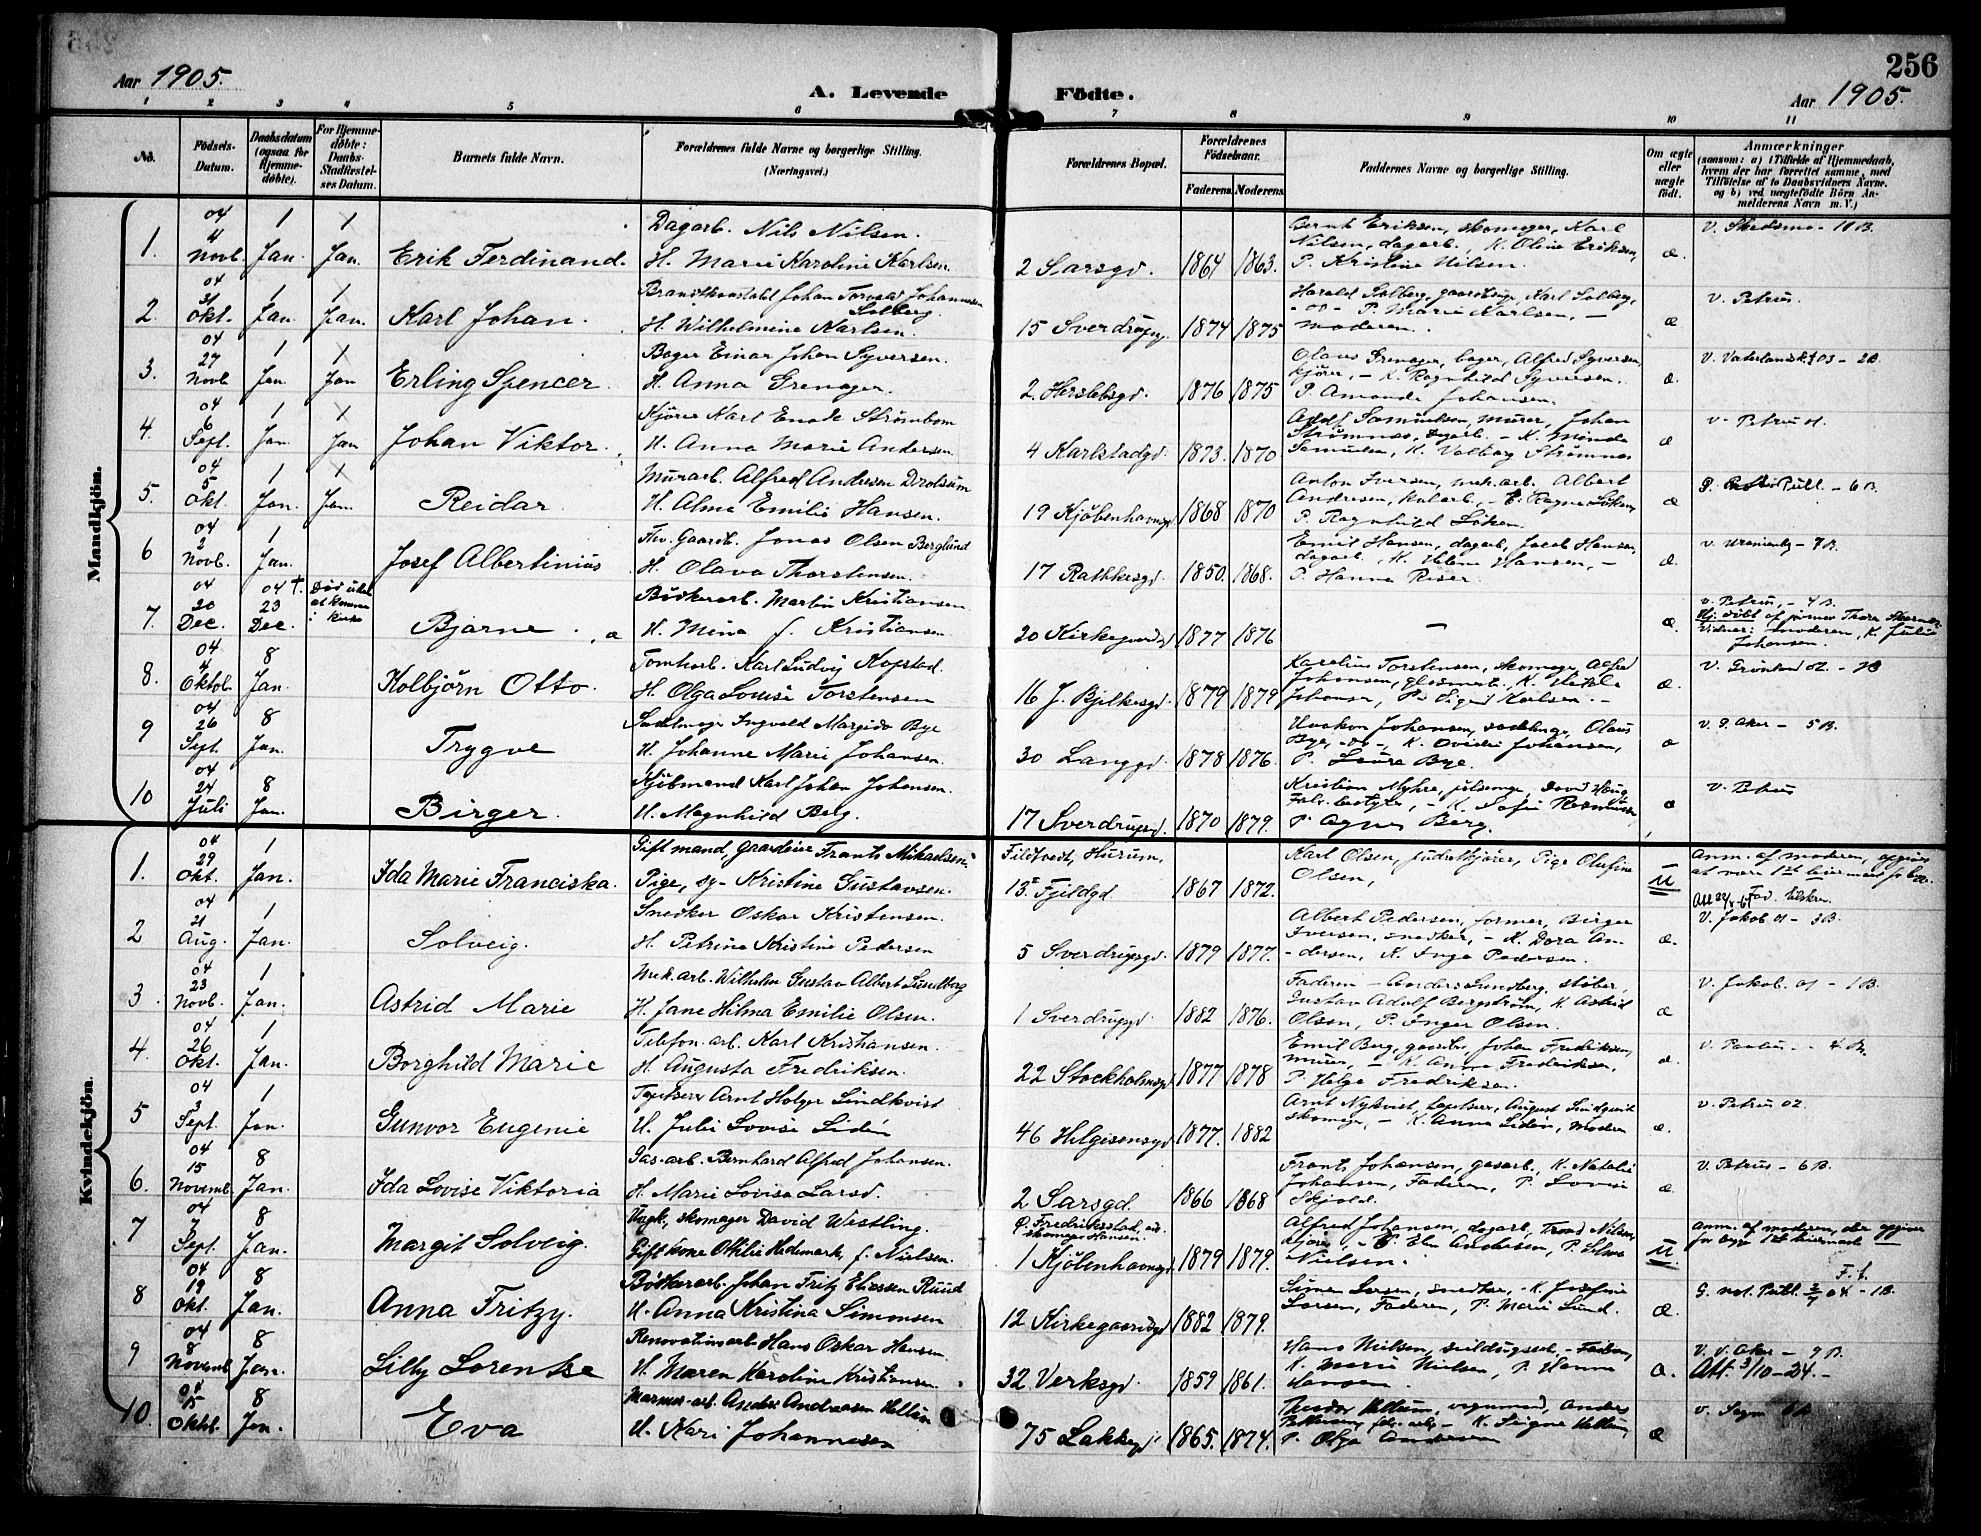 256
Aar 1905.
A. Levende Födte.
Aar 1905.
1 2 3 4 5 6 7 8 9 10 11
No.
Födsels-Datum.
Daabsdatum (ogsaa for Hjemme-döbte).
For Hjemme-döbte: Daabs-Stadfæstel-ses Datum.
Barnets fulde Navn.
Forældrenes fulde Navne og borgerlige Stilling. (Næringsvei.)
Forældrenes Bopæl.
Forældrenes Födselsaar.
Faderens. Moderens.
Faddernes Navne og borgerlige Stilling.
Om ægte eller uægte født.
Anmærkninger (saasom: a) i Tilfælde af Hjemmedaab, hvem der har forrettet samme, med Tilföielse af to Daabsvidners Navne, og b) ved uægtefödte Börn An-melderens Navn m. V.)
Mandkjön.
1. 04 4 Novb. 1 Jan. 1 Jan. Erik Ferdinand. Dagarb. Nils Nilsen.
H. Marie Karoline Karlsen. 2 Sarsgd. 1864 1863. Bernt Eriksen, skomager, Karl
Nilsen, dagarb., K. Oline Eriksen,
P. Kristine Nilsen. æ. v. Skedsmo - 10 B.
2. 04 31 Okt. 1 Jan. 1 Jan. Karl Johan. Johan Torvald Johannesen
Solberg.
H. Wilhelmine Karlsen. 15 Sverdrupsg. 1874 1875 Harald Solberg, Karl Solberg,
-do- P. Marie Karlsen, -
moderen. æ v. Petrus.
3. 04 27 Novb. 1 Jan. 1 Jan Erling Spencer. Bager Einar Johan Syversen.
H. Anna Grenager. 2. Herslebsgd. 1876 1875 Olaus Grenager, bager, Alfred Syversen,
kjører, - K. Ragnhild Syversen.
P. Amanda Johansen. æ. v. Vaterlands 03 - 2B.
4. 04 6 Sept. 1 Jan. 1 Jan Johan Viktor. Kjører Karl Enode Strömbom
H. Anna Marie Andersen 4 Karlstadgd. 1873. 1870 Adolf Samuelsen, murer, Johan
Strömnes, dagarb. - K. Minda
Samuelsen, K. Valborg Strömnes æ v. Petrus 01.
5. 04 5 Okt. 1 Jan. 1 Jan. Reidar. Murarb. Alfred Andresen
H. Alma Emilie Hansen. 19 Kjöbenhavnsgd 1868 1870 Anton Iversen, mek. arb. Albert
Andresen,
P. Ragnhild Löken. æ P. - 6 B.
6 04 2 Novb. 1 Jan. Josef Albertinius. Fhv. Gaardb. Jonas Olsen Berglund
H. Olava Thorstensen. 17 Rathkesgd. 1850. 1868. Emil Hansen, dagarb, Jacob Hansen,
dagarb. K. Helene Hansen, -
P. Hanna Riser æ. v. Uranienbg - 7 B.
7. 04 20 Dec. 04 † 23 Dec. Död uden
at komme
i kirke Bjarne. Bödkerarb. Martin Kristiansen
H. Mina f. Kristiansen 20 Kirkegaardsgd 1877 1876 - æ. v. Petrus, - 4 B.
Hj. döbt af jormor Thora
Vidner: moderen, K. Julie
Johansen.
8. 04 4 Oktob. 8 Jan. Kolbjörn Otto. Tomtearb. Karl Ludvig Kopstad.
H. Olga Lovise Torstensen 16 J. Bjelkesgd. 1879 1879 Karelius Torstensen, skomager, Alfred
Johansen, glasmest. K.
Johansen, P. Sigrid Karlsen. æ. v. Grønland 02. - 2B
9 04 26 Sept. 8 Jan. Trygve Sadelmager Ingvald Margido Bye
H. Johanne Marie Johansen. 30 Langgd. 1878 1876. Haakon Johansen, sadelmag., Olaus
Bye, -do-, K. Ovidie Johansen,
P. Laura Bye. æ v. Ø. Aker - 5 B.
10 04 24 Juli 8 Jan. Birger. Kjöbmand Karl Johan Johansen.
H. Magnhild Berg. 17 Sverdrupsgd. 1870 1879. Kristian Myhre, David Haug,
Fabr. bestyrer, - K. Sofie Rasmussen,
P. Agnes Berg. æ v. Petrus
Kvindekjön.
1. 04 29 Okt. 1 Jan. Ida Marie Franciska. Gift mand, gaardeier Frants Mikaelsen.
Pige, sy- Kristine Gustavsen. Filtvedt, Hurum.
13 Fjeldgd. 1867 1872. Karl Olsen, Pige Olufine
Olsen, U Anm. af moderen, opgives
at være 1ste leiermaal for begge.
2 04 21 Aug. 1 Jan. Solveig. Snedker Oskar Kristensen.
H. Petrine Kristine Pedersen 5 Sverdrupsgd. 1879 1877. Albert Pedersen, former, Birger
Iversen, snedker, - K. Dora An-
dersen, K. Inga Pedersen. æ. v. Jakob 01 - 3B.
3. 04 23 Novb. 1 Jan. Astrid Marie Mek. arb. Wilhelm Gustav Albert Lundberg
H. Jane Hilma Emilie Olsen. 1 Sverdrupsgd. 1882 1876. Faderen - Anders Lundberg, støber,
Gustav Adolf Bergström, K. Astrid
Olsen, P. Inger Olsen. æ v. Jakob. 01 - 1B.
4. 04 26 Okt. 1 Jan. Borghild Marie Telefon. arb. Karl Kristiansen.
H. Augusta Fredriksen. 22 Stockholmsgd 1877 1878 Emil Berg, Johan Fredriksen,
murer, - K. Anna Fredriksen,
P. Helga Fredriksen. æ. v. Paulus - 4 B.
5 04 3 Sept. 1 Jan. Gunvor Eugenie Tapetserer Arnt Holger Lindkvist
H. Julie Lovise Lidén 46 Helgesensgd 1877. 1882 Arnt Nykvist, tapetserer, August Lindqvist
skomager, - K. Anna Lidén, moderen æ. v. Petrus 02.
6. 04 15 Novemb. 8 Jan. Ida Lovise Viktoria Gas-arb. Bernhard Alfred Johansen.
H. Marie Lovise Larsd. 2 Sarsgd. 1866 1868 Frants Johansen, gasarb., K. Natalie
Johansen, Faderen, P. Lovise
Skjold. æ. v. Petrus - 6 B.
7 04 7 Sept. 8 Jan. Margit Solveig. Ungk., skomager David Westling.
Gift kone Ottilie Hedemark, f. Nielsen. Ø. Fredriksstad, ved
skomager Hansen.
1 Kjöbenhavnsgd 1879 1879. Alfred Johansen, dagarb, Trond Nilsen,
kjører, - Andersen, P.
Nielsen. U. Anm. af moderen, der opgiver
for begge 1ste leiermaal
F. f.
8 04 19 Okt. 8 Jan. Anna Fritzy. Bödkerarb. Johan Fritz Eliassen Ruud
H. Anna Kristina Simonsen 12 Kirkegaardsgd 1882 1879. Simen Larsen, snedker, - K. Josefine
Larsen, Faderen, P. Marie Lund. æ. G. not. Publ. 2/7 04 - 1B.
9 04 8 Novemb. 8 Jan. Lilly Lorentze Renovationsarb. Hans Oskar Hansen.
H. Maren Karoline Kristiansen. 32. Verksgd. 1859 1861. Hans Nielsen, - Faderen,
K. Marie Nielsen, P. Hanna
Hansen. æ. v. V. Aker - 9 B.
Att. 3/10-24. -
10. 04 15 Oktb. 8 Jan. Eva Marmor-arb. Anders Andreasen Hellum
H. Kari Johannesen 75 Lakkegd. 1865. 1874. Theodor Hellum, vognmand, Anders
K. Signe Hellum,
P. Olga Andersen æ v. Sogn 6 B